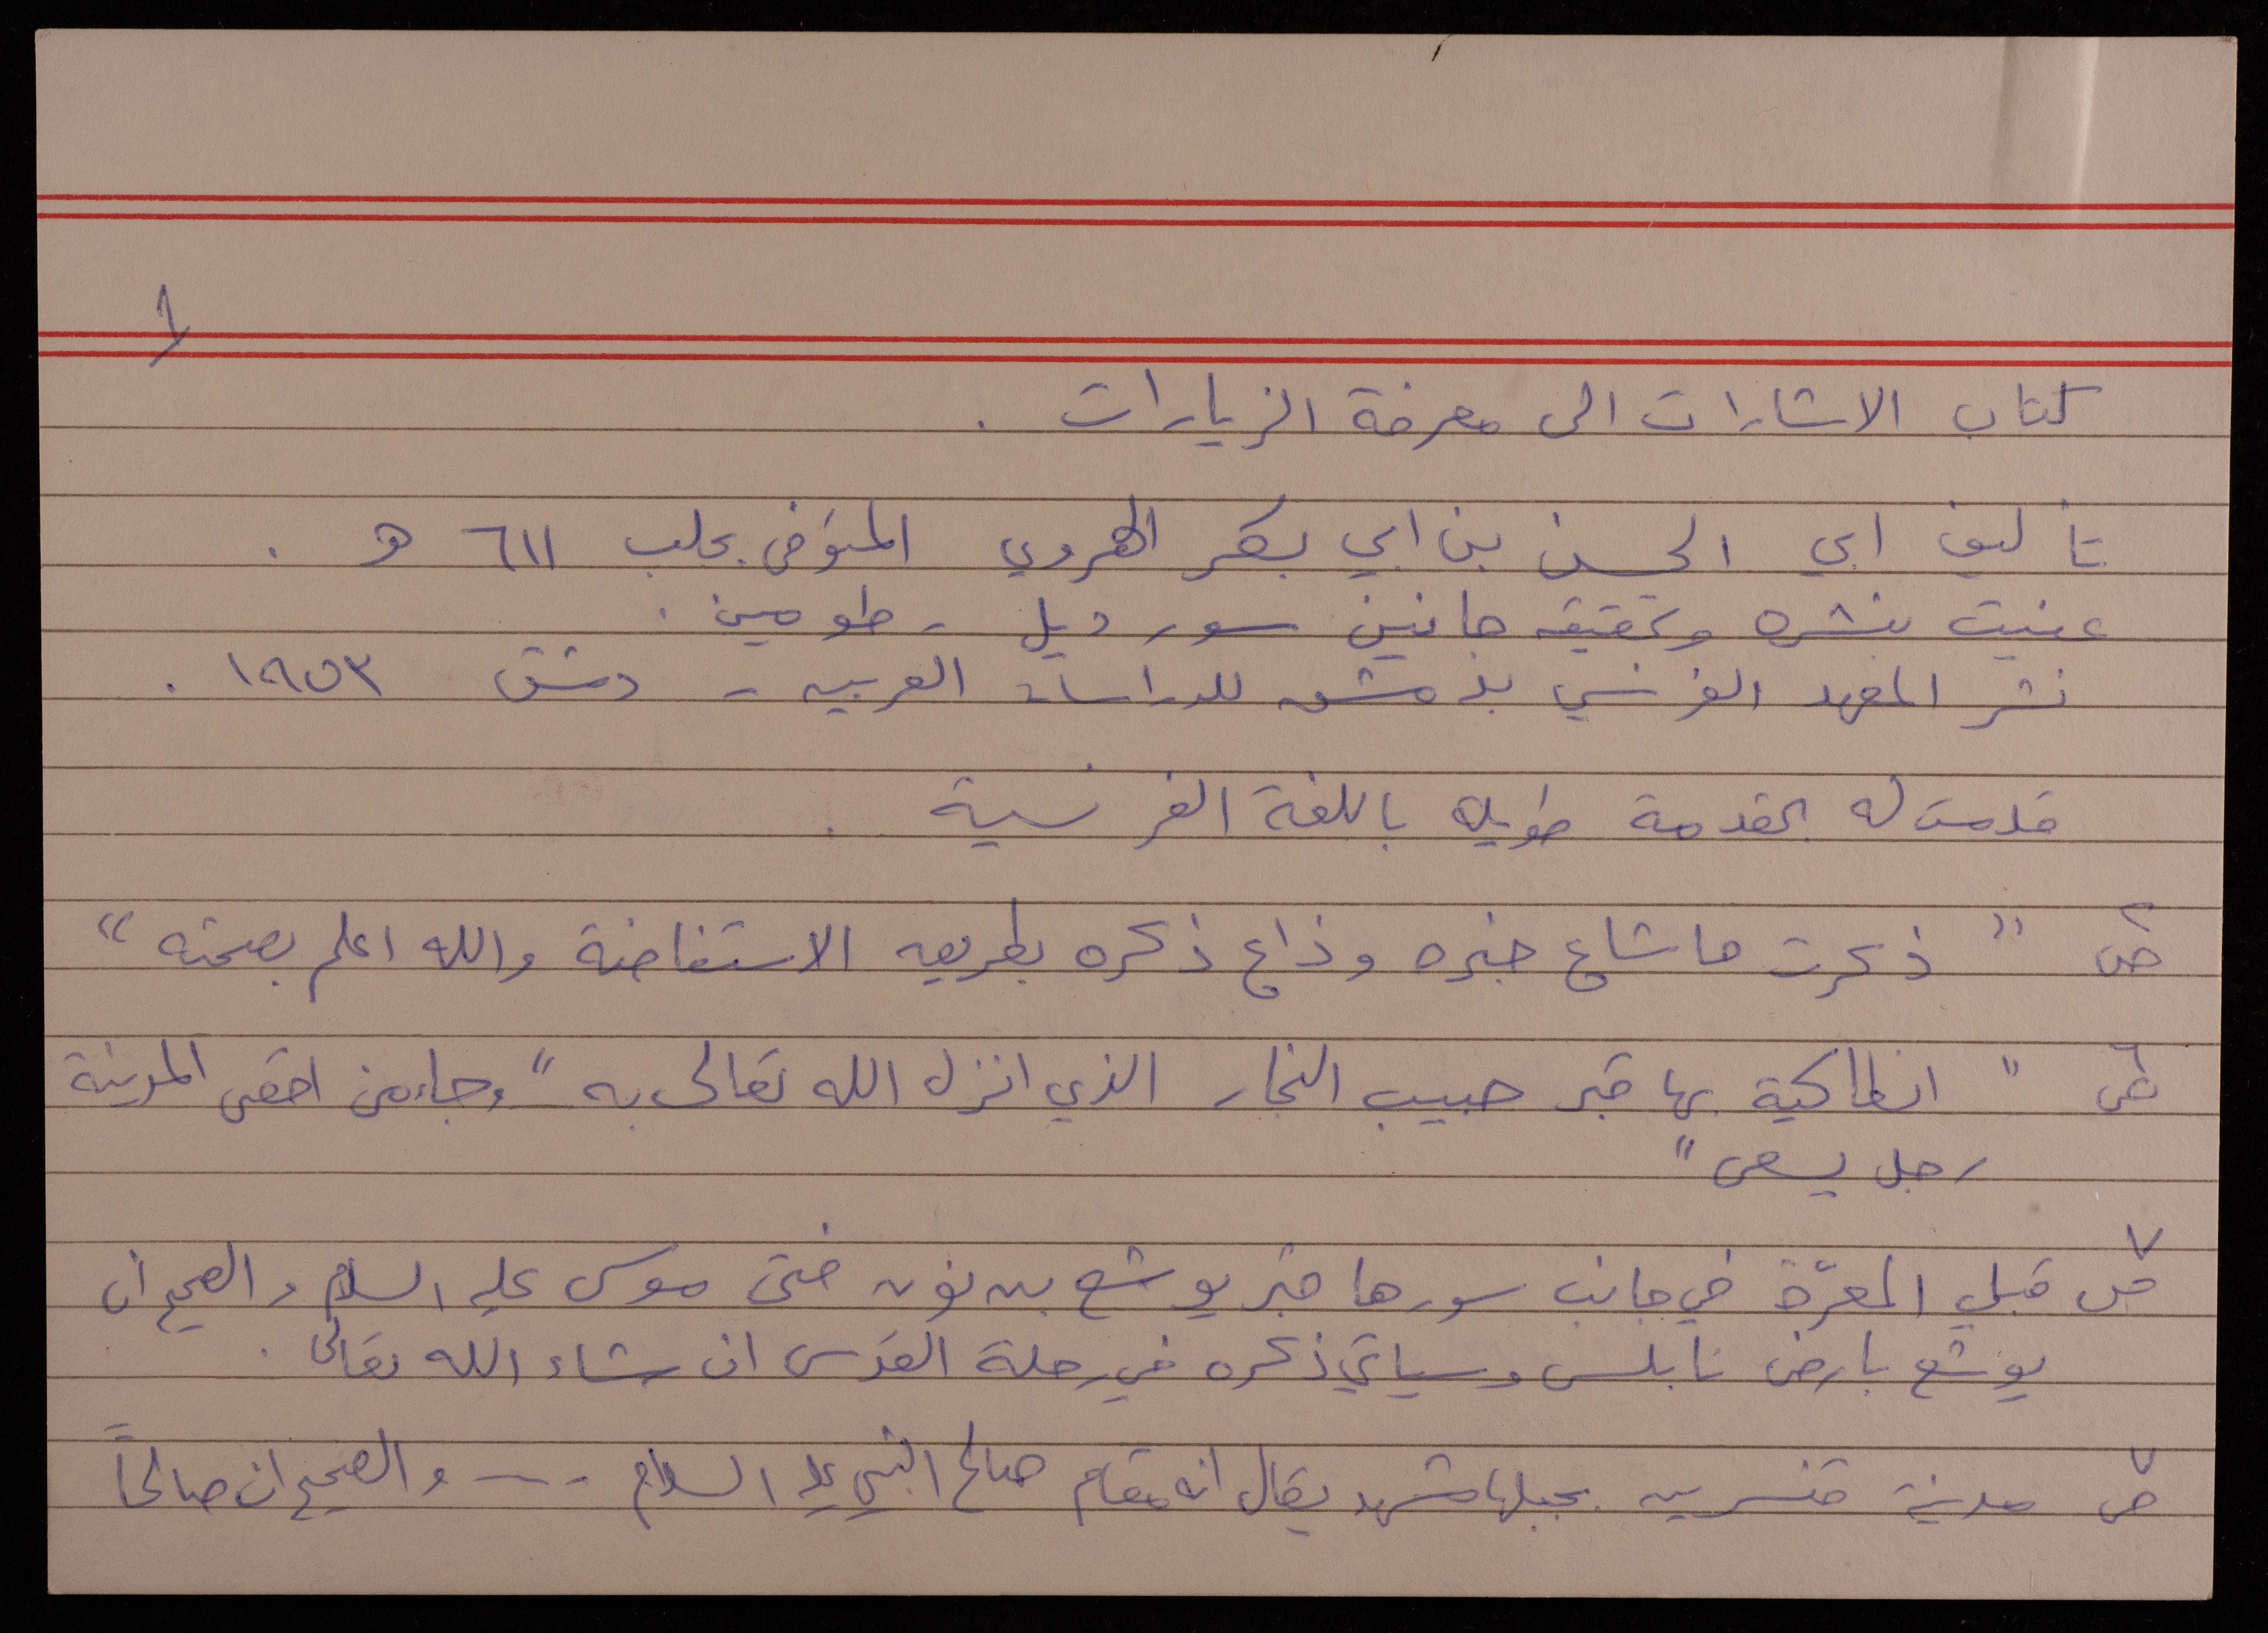 ١
كتاب الاشارات الى معرفة الزيارات .
تأليف ابي الحسن بن ابي بكر الهروي المتوفى بحلب ٦١١ هـ .
عنيت بنشره وتحقيقه جانين سورديل - طومين .
نشر المعهد الفرنسي بدمشق للدراسات العربيه - دمشق ١٩٥٣ .
قدمت له بمقدمة طويله باللغة الفرنسية .
ص٢ " ذكرت ما شاع خبره وذاع ذكره بطريق الاستفاضة والله اعلم بصحته "
ص٦ " انطاكية بها قبر حبيب النجار الذي انزل الله تعالى به " وجاء من اقصى المدينة
رجل يسعى "
ص٧ قبلي المعرّة في جانب سورها قبر يوشع بن نون فتى موسى عليه السلام والصحيح ان
يوشع بارض نابلس وسياتي ذكره في رحلة القدس ان شاء الله تعالى .
ص٧ مدينة قنسرين بجبلها مشهد يقال انه مقام صالح النبي عليه السلام --- والصحيح ان صالحاً